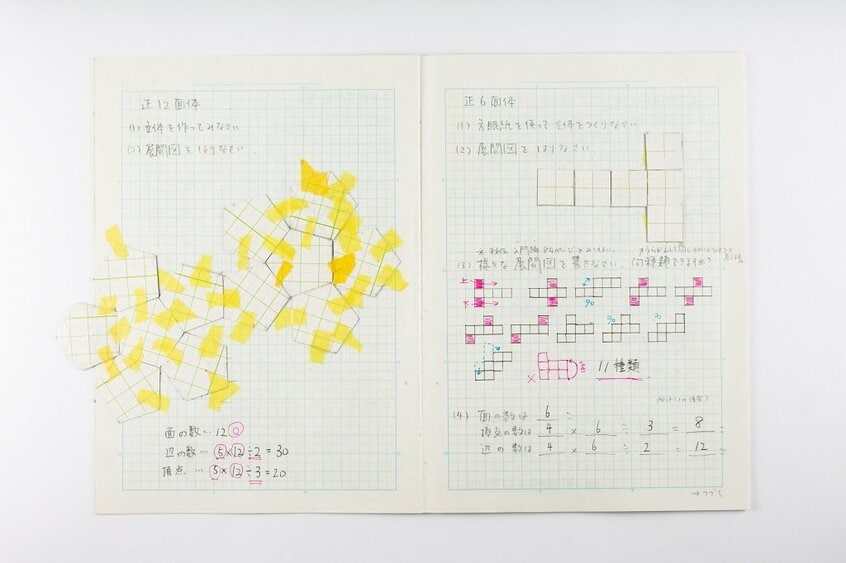 正12面体
(1) 立体を作ってみなさい
(2) 展開図をはりなさい.
面の数… 12
辺の数… 5×12÷2=30
頂点… 5×12÷3=20
正6面体
(1) 方眼紙を使って立体をつくりなさい
(2) 展開図をはりなさい.
(3) 様々な展開図を書きなさい. 何種類できますか?
上
下
90
90
×
11種類
(4) 面の数は 6
頂点の数は 4 × 6 ÷ 3 = 8
辺の数は 4 × 6 ÷ 2 = 12
→つづく